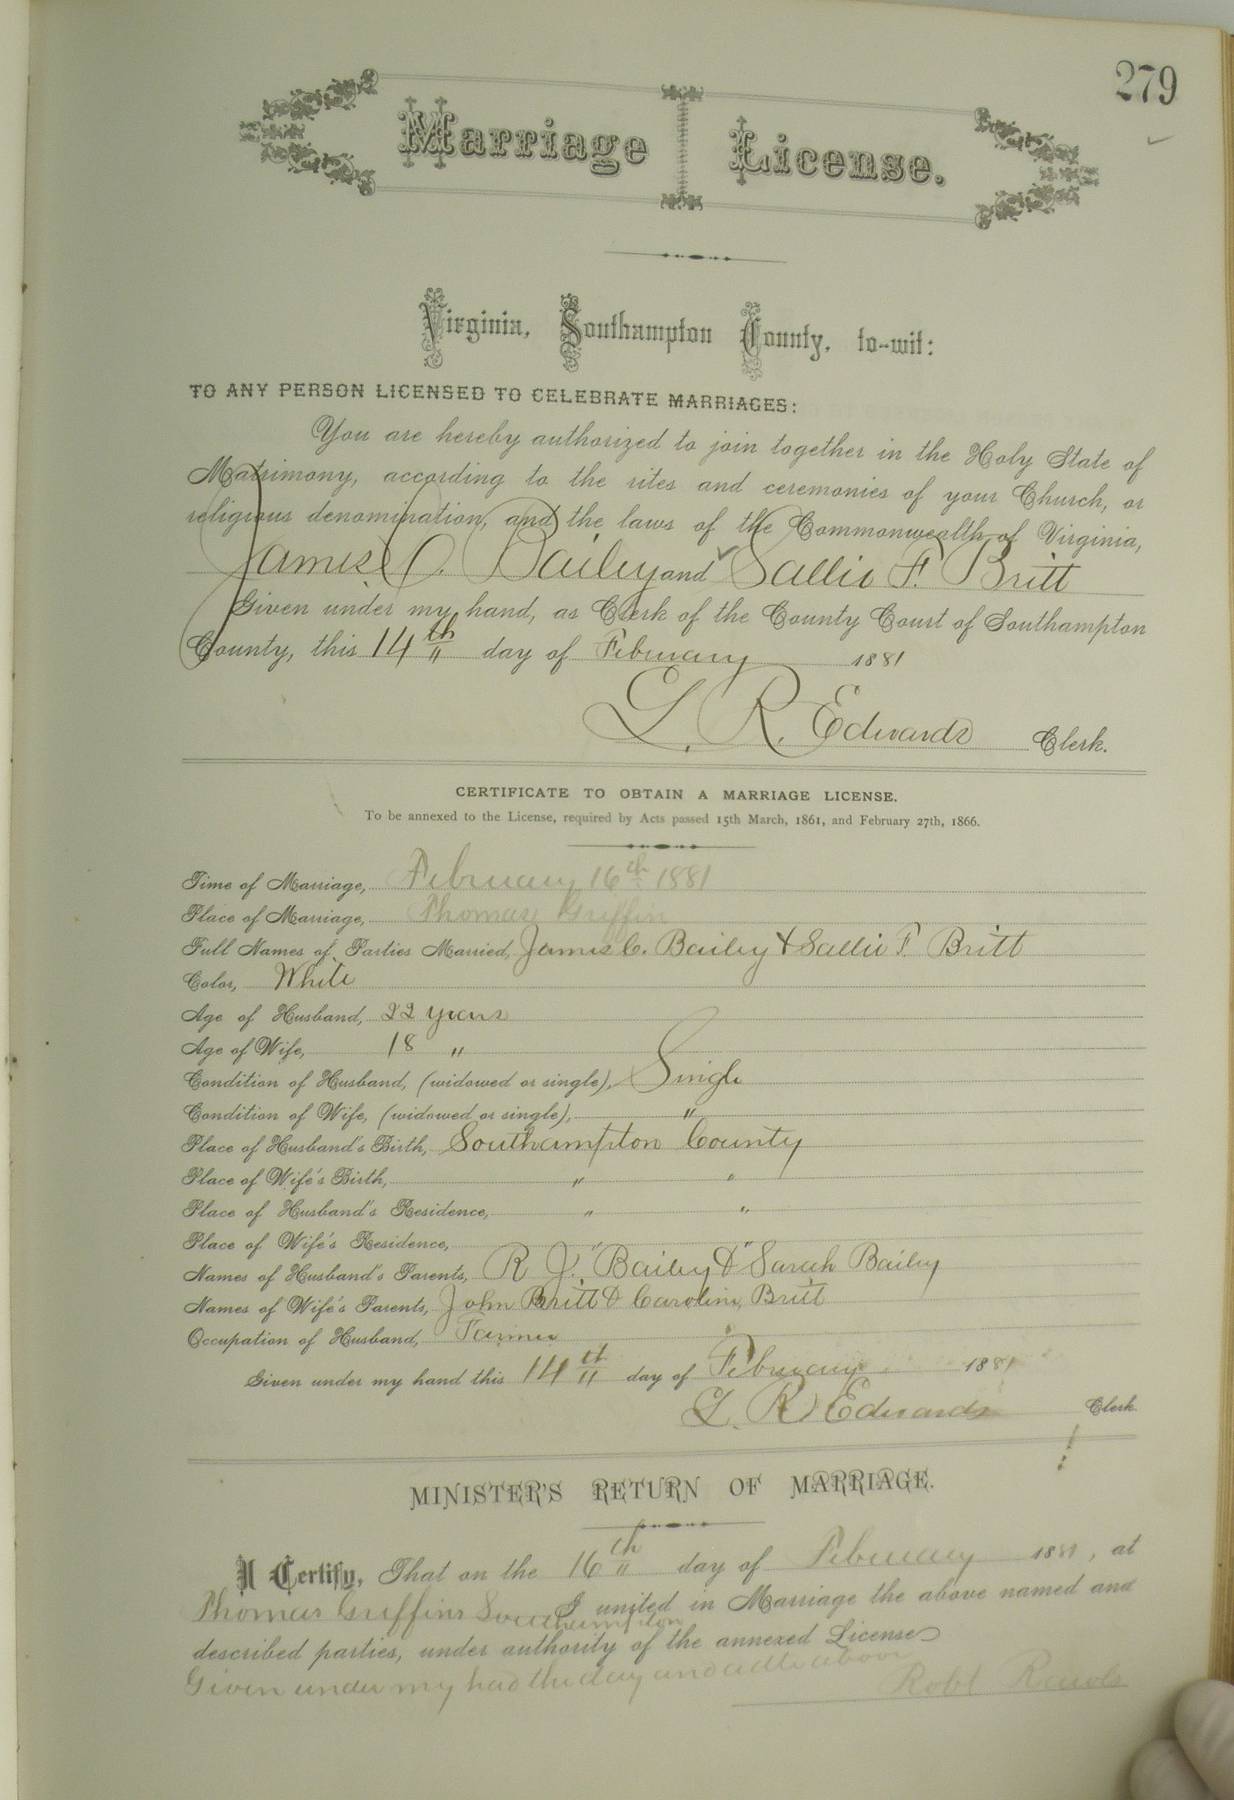 279
Marriage License.
Virginia, Southampton County, to-wit:
TO ANY PERSON LICENSED TO CELEBRATE MARRIAGES:
You are hereby authorized to join together in the Holy State of
Matrimony, according to the rites and ceremonies of your Church, or
religious denomination, and the laws of the Commonwealth of Virginia,
James C. Bailey and Sallie F. Britt
Given under my hand, as Clerk of the County Court of Southampton
County, this 14th day of February 1881
L. R. Edwards Clerk.
CERTIFICATE TO OBTAIN A MARRIAGE LICENSE.
To be annexed to the License, required by Acts passed 15th March, 1861, and February 27th, 1866.
Time of Marriage, February 16th 1881
Place of Marriage, Thomas Griffin
Full Names of Parties Married, James C. Bailey & Sallie F. Britt
Color, White
Age of Husband, 22 years
Age of Wife, 18 "
Condition of Husband, (widowed or single), Single
Condition of Wife, (widowed or single), "
Place of Husband's Birth, Southampton County
Place of Wife's Birth, " "
Place of Husband's Residence, " "
Place of Wife's Residence, " "
Names of Husband's Parents, R J. Bailey & Sarah Bailey
Names of Wife's Parents, John Britt & Caroline Britt
Occupation of Husband, Farmer
Given under my hand this 14th day of February 1881
L. R. Edwards Clerk
MINISTER'S RETURN OF MARRIAGE.
I Certify, That on the 16th day of February 1881, at
Thomas Griffins Southampton I united in Marriage the above named and
described parties, under authority of the annexed License
Given under my had the day and adte above
Robt Rawls